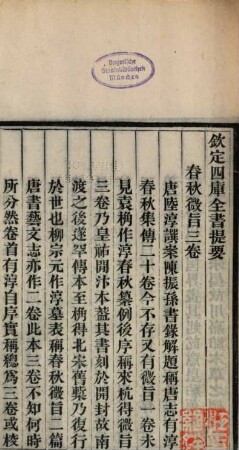 Bayerische
Staatsbibliothek
München
欽定四庫全書提要
春秋微旨三卷
唐陸淳譔案陳振孫書錄解題稱唐志有淳
春秋集傳二十卷今不存又有微旨一卷未
見袁桷作淳春秋纂例後序稱來杭得微旨
三卷乃皇祐間汴本蓋其書刻於開封故南
渡之後遂罕傳本至桷得北宋舊槧乃復行
於世也柳宗元作淳墓表稱春秋微旨二篇
唐書藝文志亦作二卷此本三卷不知何時
所分然卷首有淳自序實稱總爲三卷或校